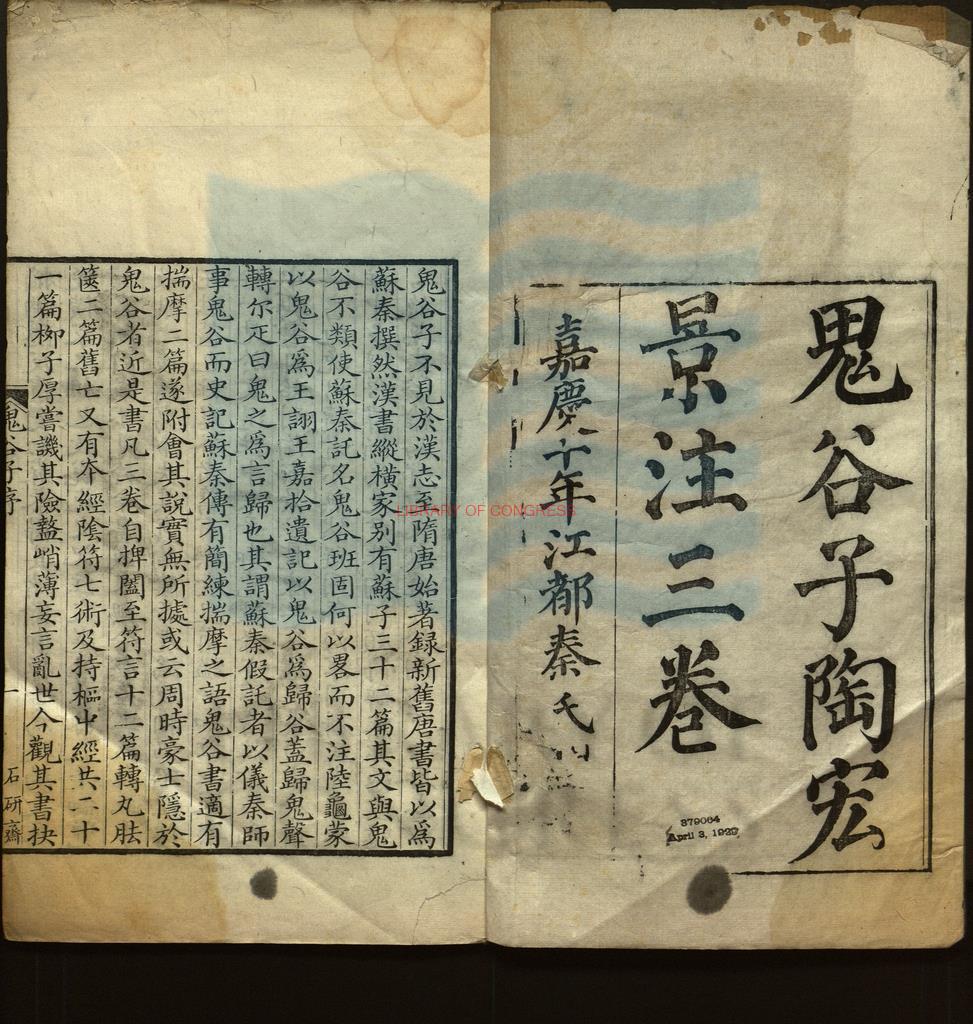 鬼谷子陶宏
景注三巻
嘉慶十年江都秦氏
379064
April 3, 1929
鬼谷子不見於漢志至隋唐始著録新舊唐書皆以爲
蘇秦撰然漢書縱横家别有蘇子三十二篇其文與鬼
谷不類使蘇秦託名鬼谷班固何以畧而不注陸龜蒙
以鬼谷爲王詡王嘉拾遺記以鬼谷爲歸谷蓋歸鬼聲
轉尔疋曰鬼之爲言歸也其謂蘇秦假託者以儀秦師
事鬼谷而史記蘇秦傳有簡練揣摩之語鬼谷書適有
揣摩二篇遂附會其說實無所據或云周時豪士隱於
鬼谷者近是書凡三卷自捭闔至符言十二篇轉丸胠
篋二篇舊亡又有本經陰符七術及持樞中經共二十
一篇柳子厚嘗譏其險盭峭薄妄言亂世今觀其書抉
鬼谷子序
一
石研齋
LIBRARY OF CONGRESS